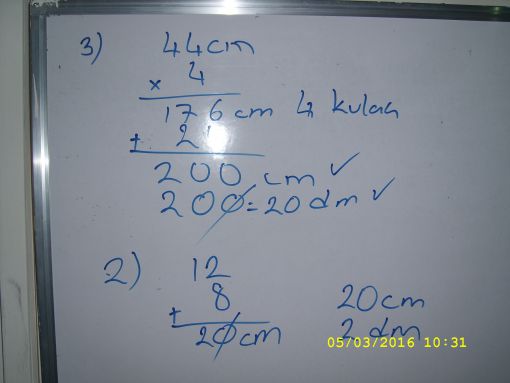 3) 44cm
× 4
176 cm 4 kulaç
+ 24
200 cm ✓
200=20 dm ✓
2) 12
8
+
20cm 20cm
2 dm
05/03/2016 10:31